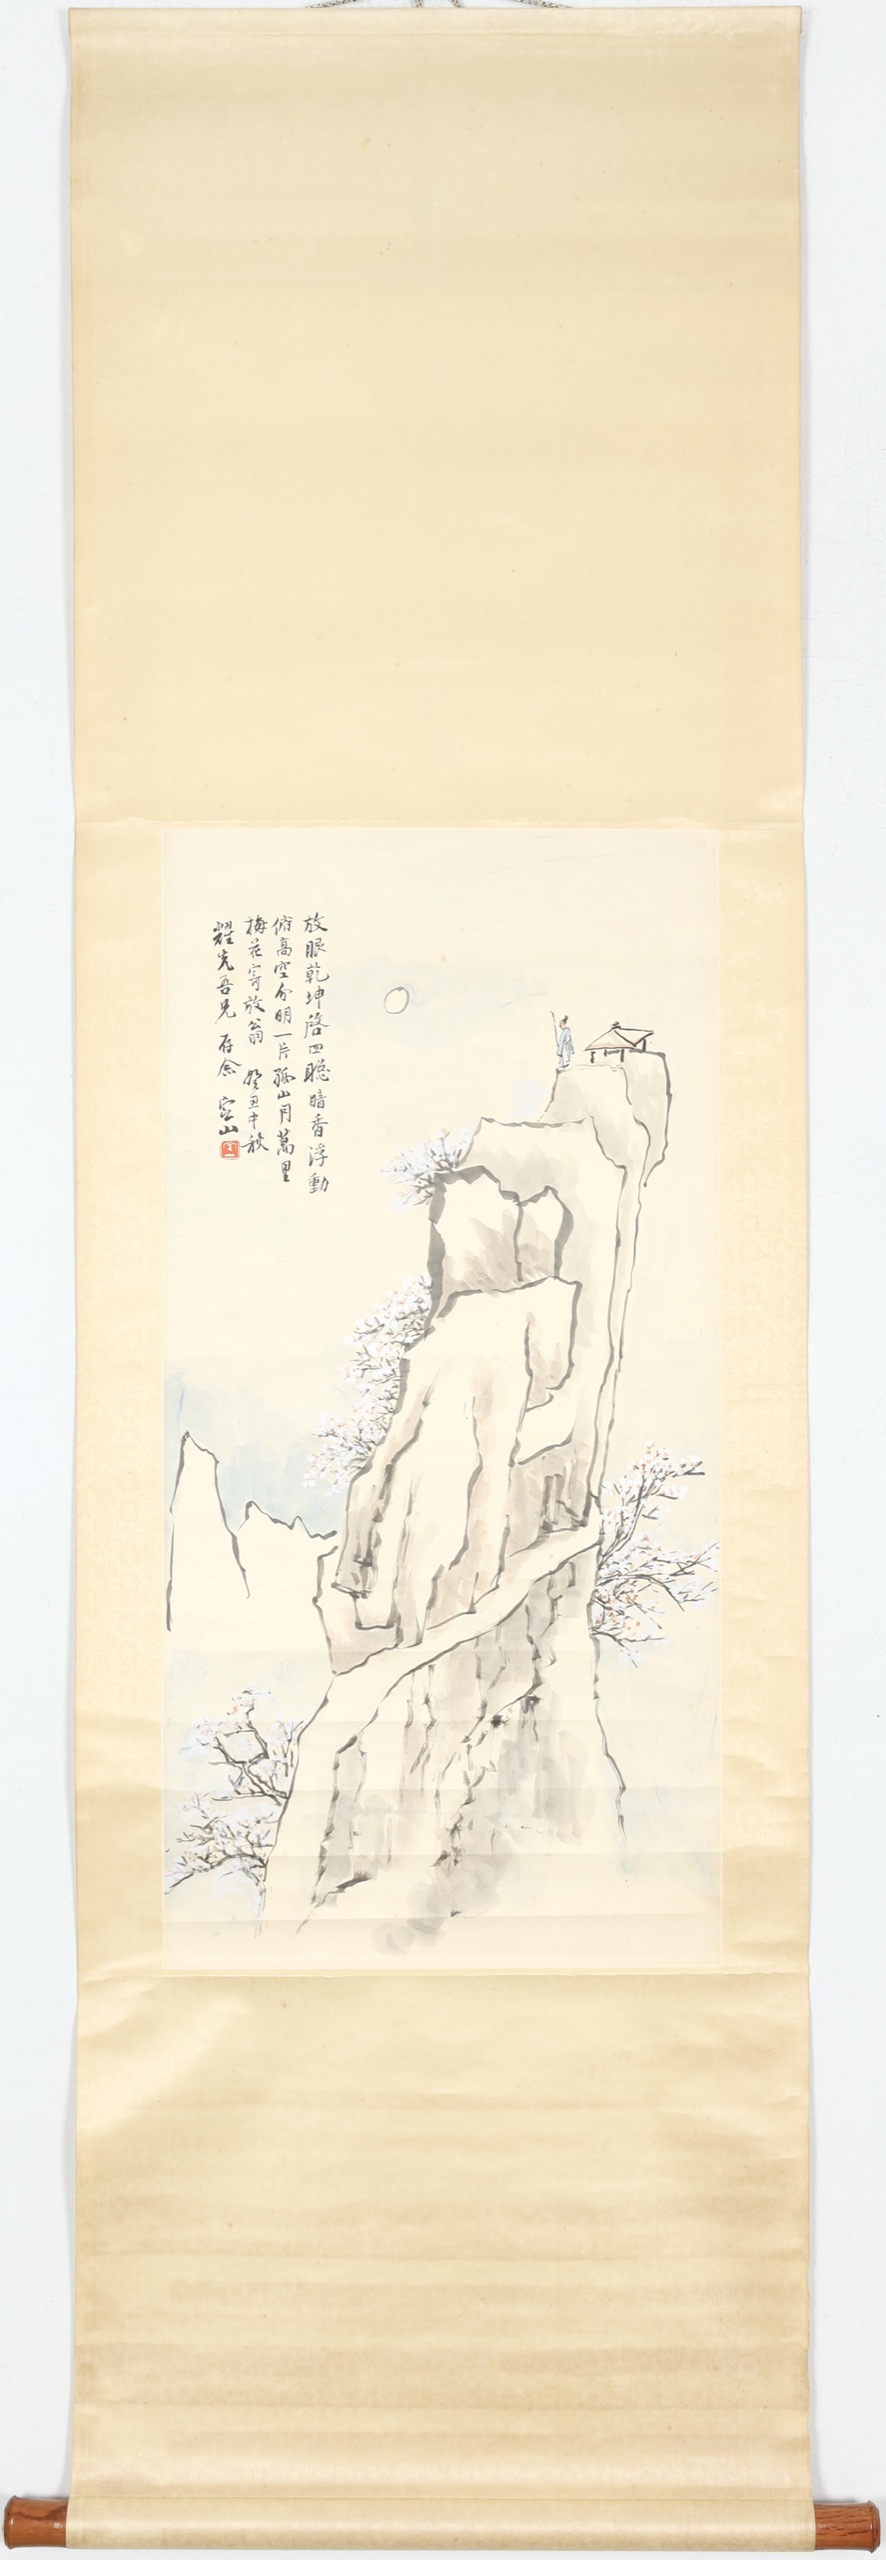 放眼乾坤啓四聰暗香浮動
俯高空分明一片孤山月萬里
梅花寄放翁 癸丑中秋
耀先吾兄 存念 空山